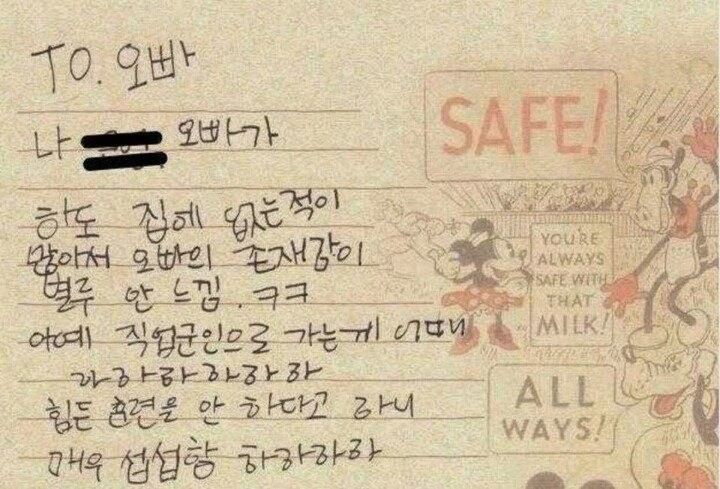 TO. 오빠
나 오빠가
하도 집에 없는적이
많아서 오빠의 존재감이
별루 안 느낌. ㅋㅋ
아예 직업군인으로 가는게 어떠니
라하하하하하
힘든 훈련을 안 하다고 하니
매우 섭섭함 하하하하
SAFE!
YOU'RE
ALWAYS
SAFE WITH
THAT
MILK!
ALL
WAYS!